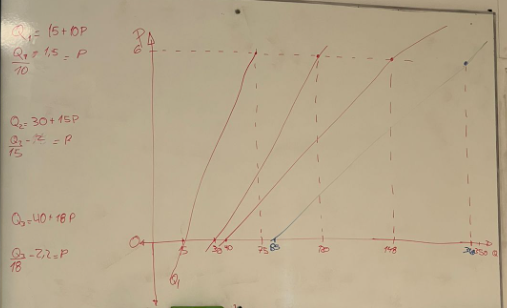 Q1 = 15+10P
Q1/10 = 1,5 = P
Q2 = 30+15P
Q2/15 - 2 = P
Q3 = 40+18P
Q3/18 - 2,2 = P
P
6
0
15
30
40
75
85
120
148
250
Q
Q1